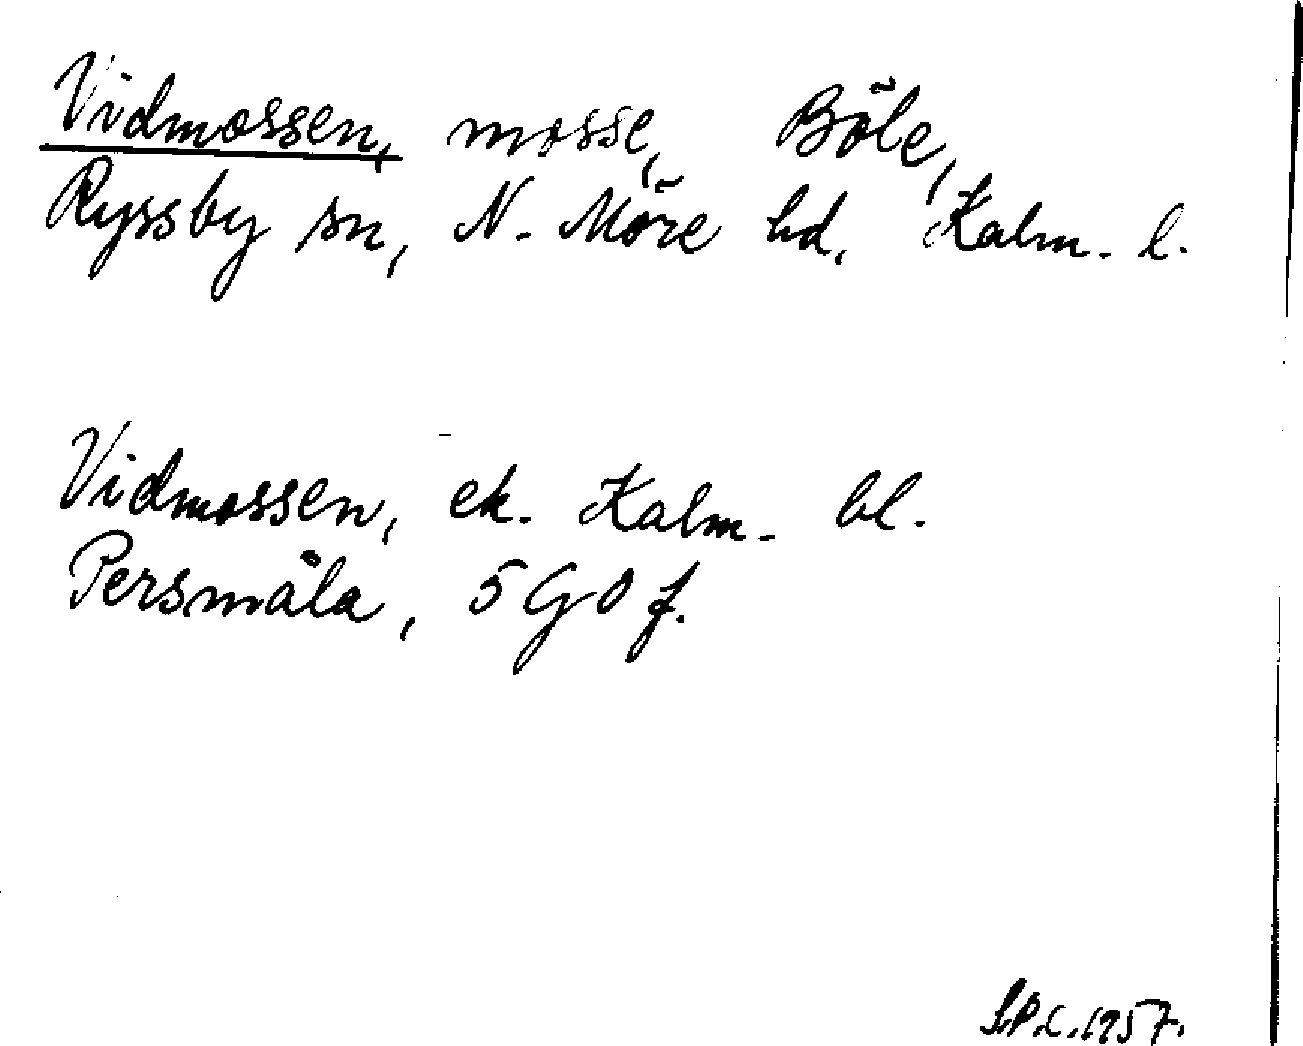 Vidmossen, mosse, Böle,
Ryssby sn, N. Möre hd, Kalm. l.
Vidmossen, ek. Kalm. bl.
Persmåla, 5 G 0 f.
S.P.L. 1957.